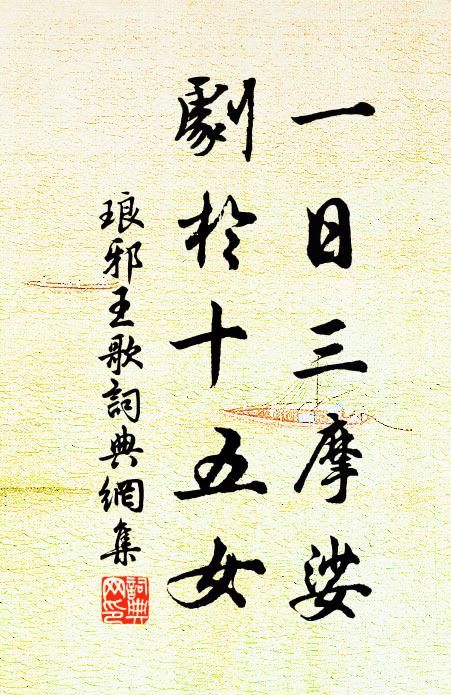 一日三摩娑
劇於十五女
琅邪王歌詞典網集
詞典
网印